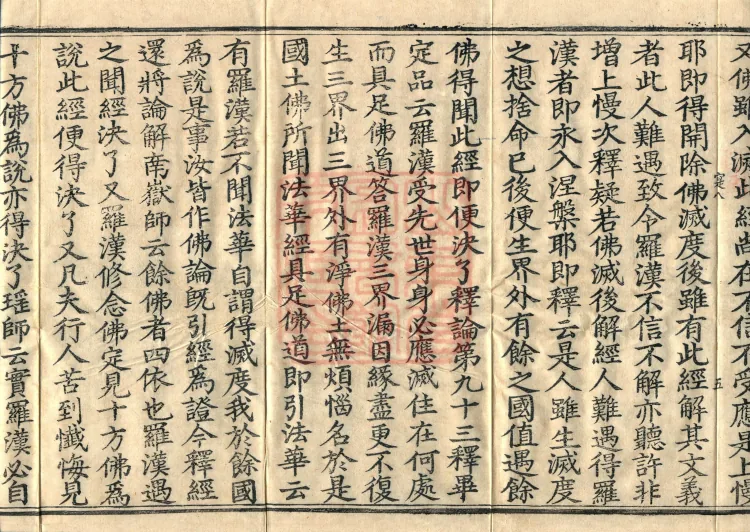 又佛雖入滅此經尚在不信不受應是上慢
五
耶即得開除佛滅度後雖有此經解其文義
者此人難遇致令羅漢不信不解亦聽許非
增上慢次釋疑若佛滅後解經人難遇得羅
漢者即永入涅槃耶即釋云是人雖生滅度
之想捨命已後便生界外有餘之國值遇餘
佛得聞此經即便決了釋論第九十三釋畢
定品云羅漢受先世身身必應滅住在何處
而具足佛道答羅漢三界漏因緣盡更不復
生三界出三界外有淨佛土無煩惱名於是
國土佛所聞法華經具足佛道即引法華云
有羅漢若不聞法華自謂得滅度我於餘國
為說是事汝皆作佛論既引經為證今釋經
還將論解南嶽師云餘佛者四依也羅漢遇
之聞經決了又羅漢修念佛定見十方佛為
說此經便得決了又凡夫行人苦到懺悔見
十方佛為說亦得決了瑤師云實羅漢必自